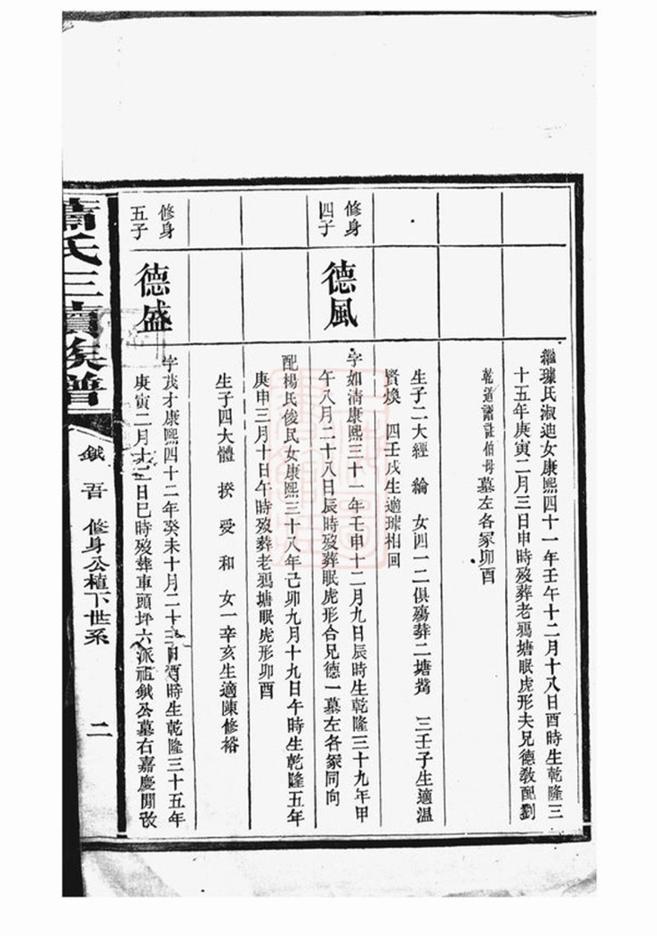 繼璩氏淑迪女康熙四十一年壬午十二月十八日酉時生乾隆三
十五年庚寅二月三日申時歿葬老鴉塘眠虎形夫兄德敎配劉
乾道諸註伯母墓左各冢卯酉
生子二大經 綸 女四一二俱殤葬二塘 三壬子生適溫
賢煥 四壬戌生適璩相回
修身
四子
德風
字如清康熙三十一年壬申十二月九日辰時生乾隆三十九年甲
午八月二十八日辰時歿葬眠虎形合兄德一墓左各冢同向
配楊氏俊民女康熙三十八年己卯九月十九日午時生乾隆五年
庚申三月十日午時歿葬老鴉塘眠虎形卯酉
生子四大體 揆 愛 和 女一辛亥生適陳修裕
修身
五子
德盛
字茂才康熙四十二年癸未十月二十三日酉時生乾隆三十五年
庚寅二月十二日巳時歿葬車頭坪六派祖鉞公墓右嘉慶閒改
蕭氏三續族譜
鉞 吾 修身公植下世系
二